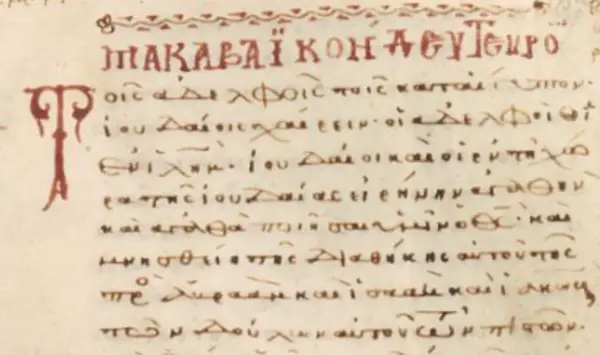 ΜΑΚΑΒΑΪΚΟΝ ΔΕΥΤΕΥΡΟ̅
Τοῖς ἀδελφοῖς τοῖς κατ αἴγυπτον
ἰουδαίοις χαίρειν· οἱ ἀδελφοὶ οἱ
ἐν ἰλη̅μ· ἰουδαῖοι καὶ οἱ ἐν τῇ χώ
ρα τῆς ἰουδαίας εἰρήνην ἀγαθὴν
καὶ ἀγαθὰ ποιῆσαι ὑμῖν ὁ θς̅· καὶ
μνησθείη τῆς διαθήκης αὐτοῦ τῆς
πρὸ ἀβραὰμ καὶ ἰσαὰκ καὶ ἰακώβ
τῶν δούλων αὐτοῦ τῶν πιστῶν·